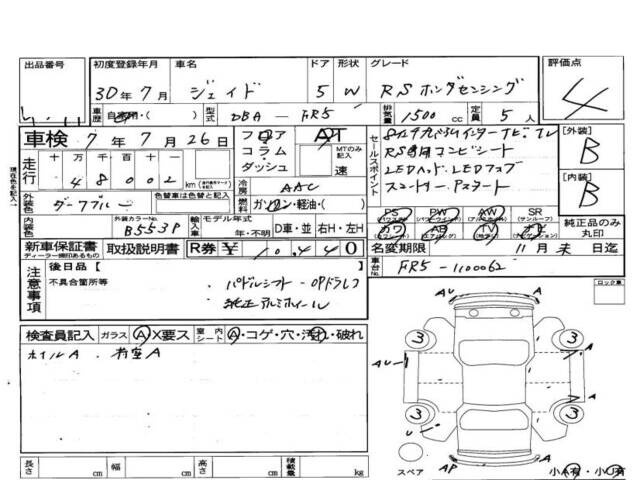 出品番号 初度登録年月 車名 ドア 形状 グレード 評価点
30年7月 ジェイド 5 W RSホンダセンシング 4
車歴 自家用・( ) 型式 DBA－FR5 排気量 1500 cc 定員 5 人
車検 7年7月26日 フロア コラム ダッシュ AT MTのみ記入 速
走行 十 万 千 百 十 一
48002 km
冷房 AAC
燃料 ガソリン・軽油・( )
外装色 ダークブルー 色替車は色替と記入
内装色 外装カラーNo. B553P 輸入車 モデル年式 年・不明 D車・並 右H・左H
セールスポイント
RS専用コンビシート
LEDヘッド、LEDフォグ
スマートキー、Pスタート
[外装] B
[内装] B
PS PW AW SR
(パワステ) (パワーウインド) (アルミホイール) (サンルーフ)
カワ AB TV ナビ
(革シート) (エアバッグ) (テレビ) (ナビゲーション)
純正品のみ丸印
新車保証書 ディーラー捺印あるもの 取扱説明書 R券 ¥10,440 名変期限 11月末日迄
注意事項 後日品 [ ]
不具合箇所等
パドルシフト
純正アルミホイール
車台No. FR5-1100062
ロック車
検査員記入 ガラス A・X要ス 室内シート A・コゲ・穴・汚れ・破れ
ホイルA
AU A
3 3
AU A
3 3
U A
スペア AP A 小A有・小U有
長さ cm 幅 cm 高さ cm 積載量 kg